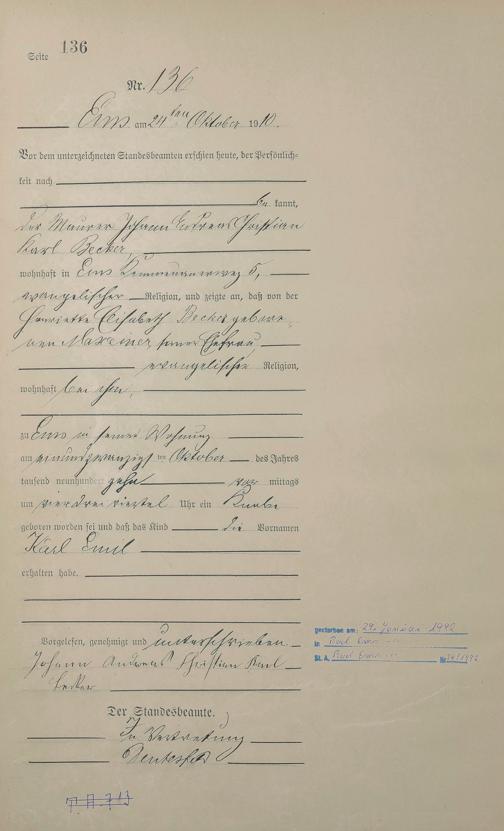 Seite 136
Nr. 136
Ems am 24ten Oktober 1910.
Vor dem unterzeichneten Standesbeamten erschien heute, der Persönlich-
keit nach
be kannt,
der Maurer Johann Andreas Christian
Karl Becker,
wohnhaft in Ems 5,
evangelischer Religion, und zeigte an, daß von der
Henriette Elisabeth Becker gebore-
nen seiner Ehefrau
evangelischer Religion,
wohnhaft bei ihm,
zu Ems in seiner Wohnung
am einundzwanzigsten Oktober des Jahres
tausend neunhundert zehn vor mittags
um vier drei viertel Uhr ein Knabe
geboren worden sei und daß das Kind die Vornamen
Karl Emil
erhalten habe.
Vorgelesen, genehmigt und unterschrieben
Johann Andreas Christian Karl
Becker
Der Standesbeamte.
In Vertretung
gestorben am: 29. Januar 1992
in Bad Ems
St. A. Bad Ems Nr.